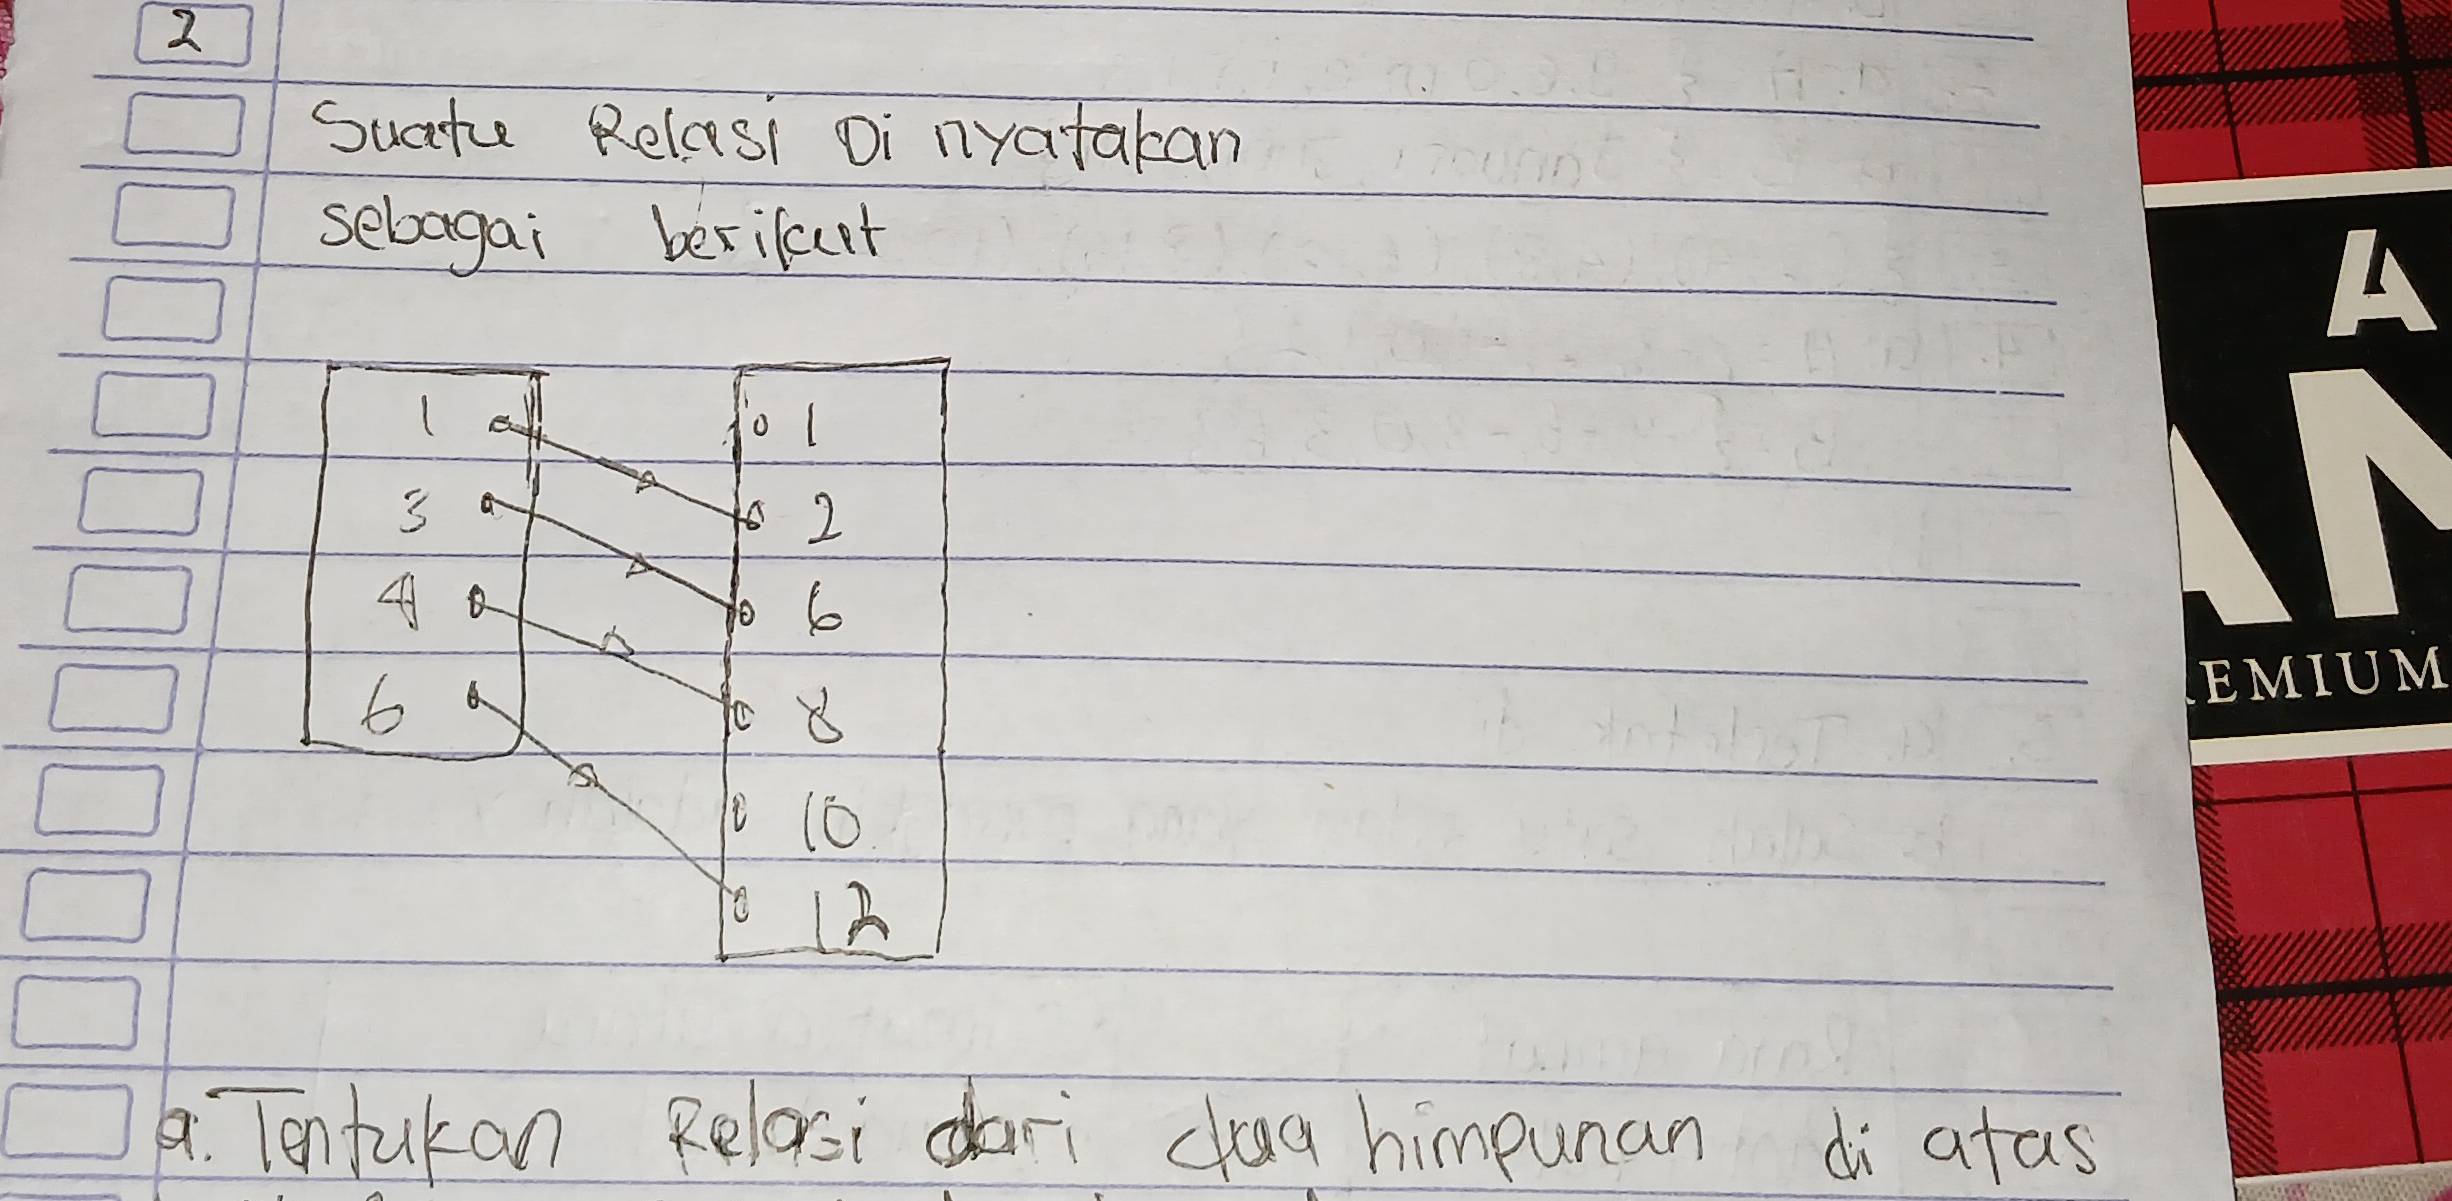 2
Suatu Relasi Di nyatakan
sebagai berikut
1 1
3 2
4 6
6 8
10
12
a. Tentukan Relasi dari dua himpunan di atas
A
AN
REMIUM